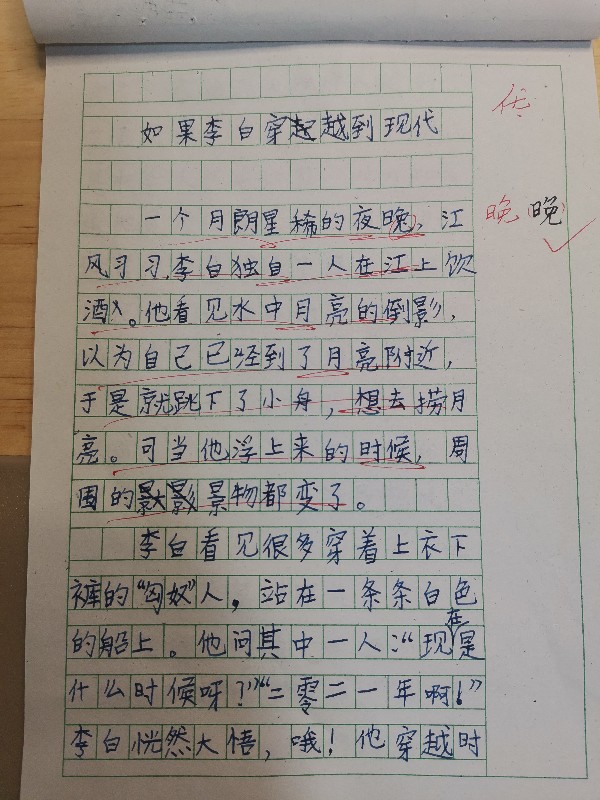 优
如果李白穿越到现代
一个月朗星稀的夜晚，江
晚 晚
风习习，李白独自一人在江上饮
酒。他看见水中月亮的倒影，
以为自己已经到了月亮附近，
于是就跳下了小舟，想去捞月
亮。可当他浮上来的时候，周
围的景物都变了。
李白看见很多穿着上衣下
裤的“匈奴”人，站在一条条白色
的船上。他问其中一人：“现在是
什么时候呀？”“二零二一年啊！”
李白恍然大悟，哦！他穿越时